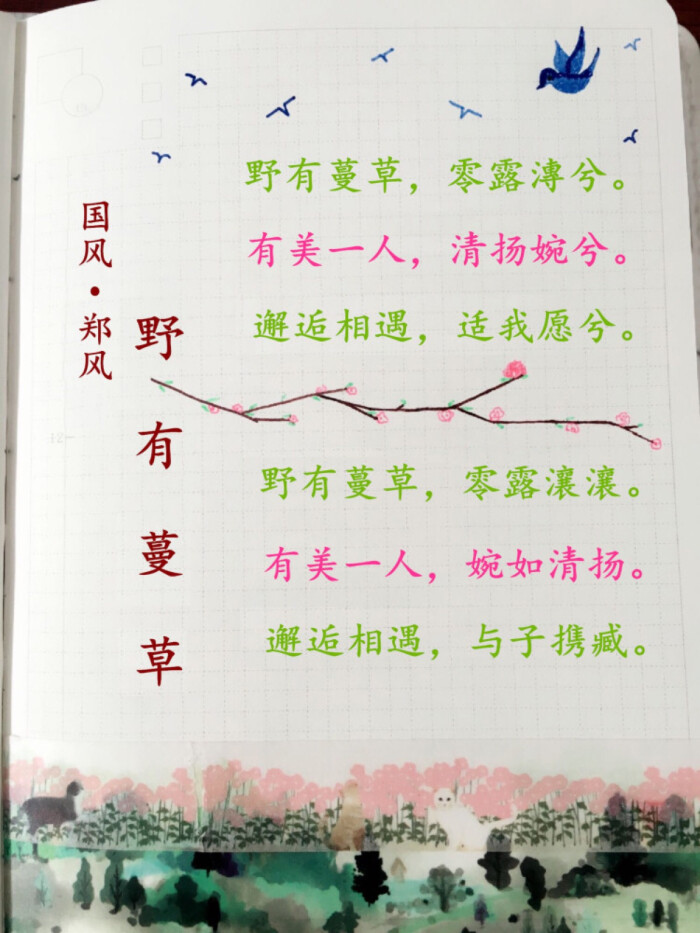 国风·郑风
野有蔓草
野有蔓草，零露漙兮。
有美一人，清扬婉兮。
邂逅相遇，适我愿兮。
野有蔓草，零露瀼瀼。
有美一人，婉如清扬。
邂逅相遇，与子携臧。
12